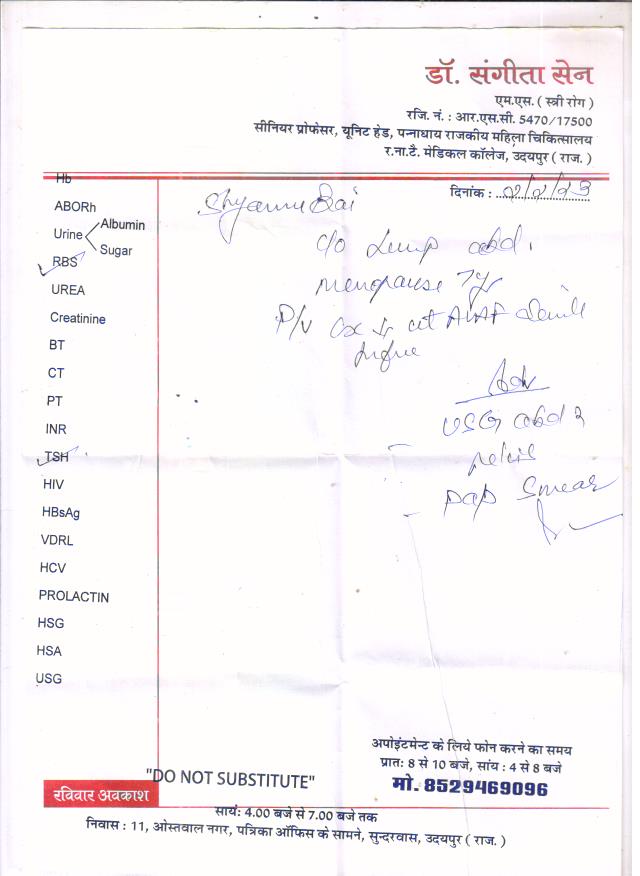 डॉ. संगीता सेन
एम.एस. ( स्त्री रोग )
रजि. नं. : आर.एस.सी. 5470/17500
सीनियर प्रोफेसर, यूनिट हेड, पन्नाधाय राजकीय महिला चिकित्सालय
र.ना.टै. मेडिकल कॉलेज, उदयपुर ( राज. )
दिनांक :
Hb
ABORh
Urine Albumin
Sugar
RBS
UREA
Creatinine
BT
CT
PT
INR
TSH
HIV
HBsAg
VDRL
HCV
PROLACTIN
HSG
HSA
USG
c/o Lump abd.
menopause 7yr
P/v Cx
Adv
USG abd
pelvis
Pap Smear
अपोइंटमेन्ट के लिये फोन करने का समय
प्रातः 8 से 10 बजे, सांय : 4 से 8 बजे
मो. 8529469096
"DO NOT SUBSTITUTE"
रविवार अवकाश
सायं: 4.00 बजे से 7.00 बजे तक
निवास : 11, ओस्तवाल नगर, पत्रिका ऑफिस के सामने, सुन्दरवास, उदयपुर ( राज. )